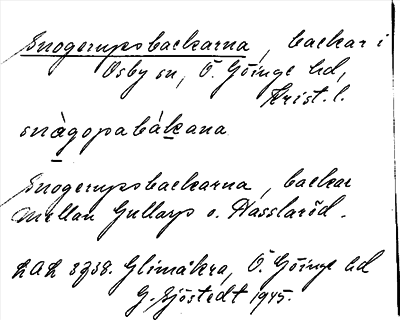 Snogerupsbackarna, backar i
Osby sn, Ö. Göinge hd,
Krist. l.
snàgopabákana
Snogerupsbackarna, backar
mellan Gullarp o. Hasslaröd.
LAL 3938. Glimåkra, Ö. Göinge hd
G. Sjöstedt 1945.